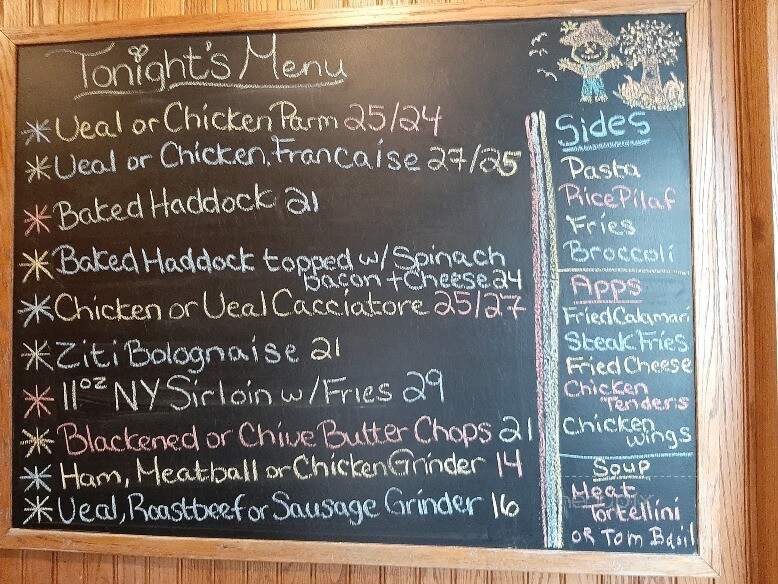 Tonight's Menu
Veal or Chicken Parm 25/24
Veal or Chicken, Francaise 27/25
Baked Haddock 21
Baked Haddock topped w/Spinach
bacon + Cheese 24
Chicken or Veal Cacciatore 25/27
Ziti Bolognaise 21
11oz NY Sirloin w/Fries 29
Blackened or Chive Butter Chops 21
Ham, Meatball or Chicken Grinder 14
Veal, Roastbeef or Sausage Grinder 16
Sides
Pasta
Rice Pilaf
Fries
Broccoli
Apps
Fried Calamari
Steak Fries
Fried Cheese
Chicken
Tenders
Chicken
Wings
Soup
Meat
Tortellini
or Tom Basil